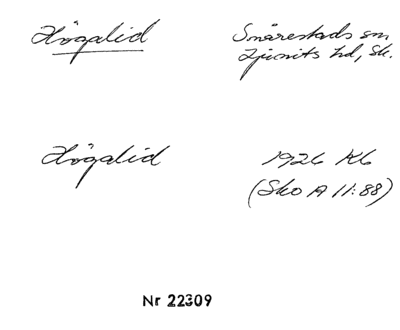 Högalid
Snårestads sn
Ljunits hd, Sk.
Högalid
1926 Kb
(Sko A 11:88)
Nr 22309